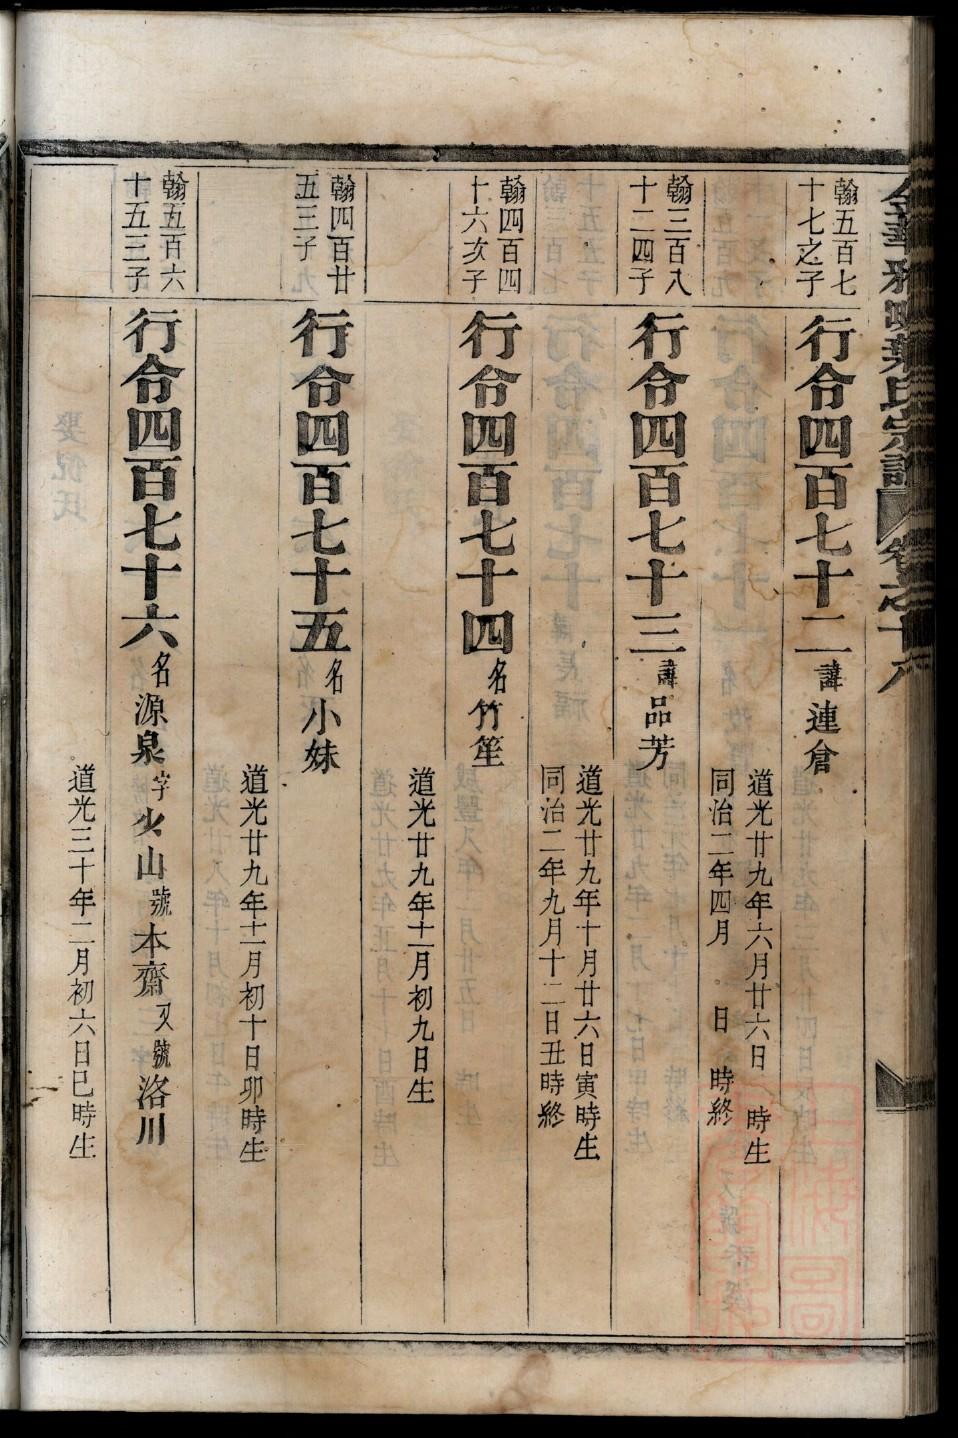 金華雅畈葉氏宗譜 卷之十八
翰五百七
十七之子
行令四百七十二 諱連倉
道光廿九年六月廿六日 時生
同治二年四月 日 時終
翰三百八
十二四子
行令四百七十三 諱品芳
道光廿九年十月廿六日寅時生
同治二年九月十二日丑時終
翰四百四
十六次子
行令四百七十四 名竹笙
道光廿九年十一月初九日生
翰四百廿
五三子
行令四百七十五 名小妹
道光廿九年十一月初十日卯時生
翰五百六
十五三子
行令四百七十六 名源泉字少山號本齋又號洛川
道光三十年二月初六日巳時生